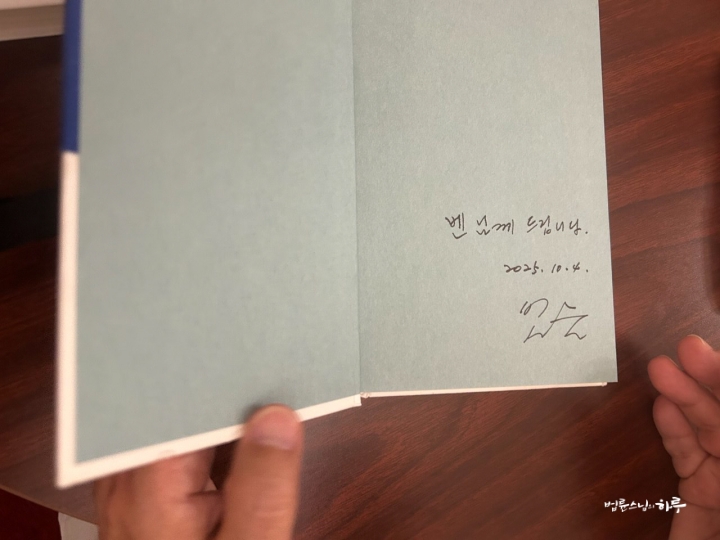 벤 님께 드립니다.
2025. 10. 4.
법륜
법륜스님의하루